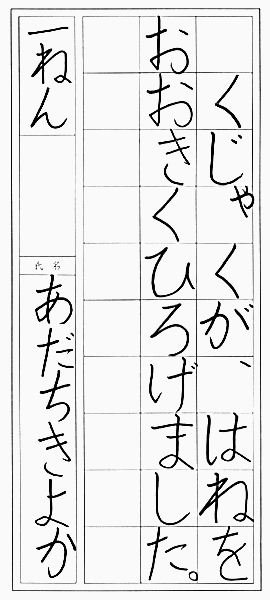 くじゃくが、はねを
おおきくひろげました。
一ねん
氏名
あだちきよか